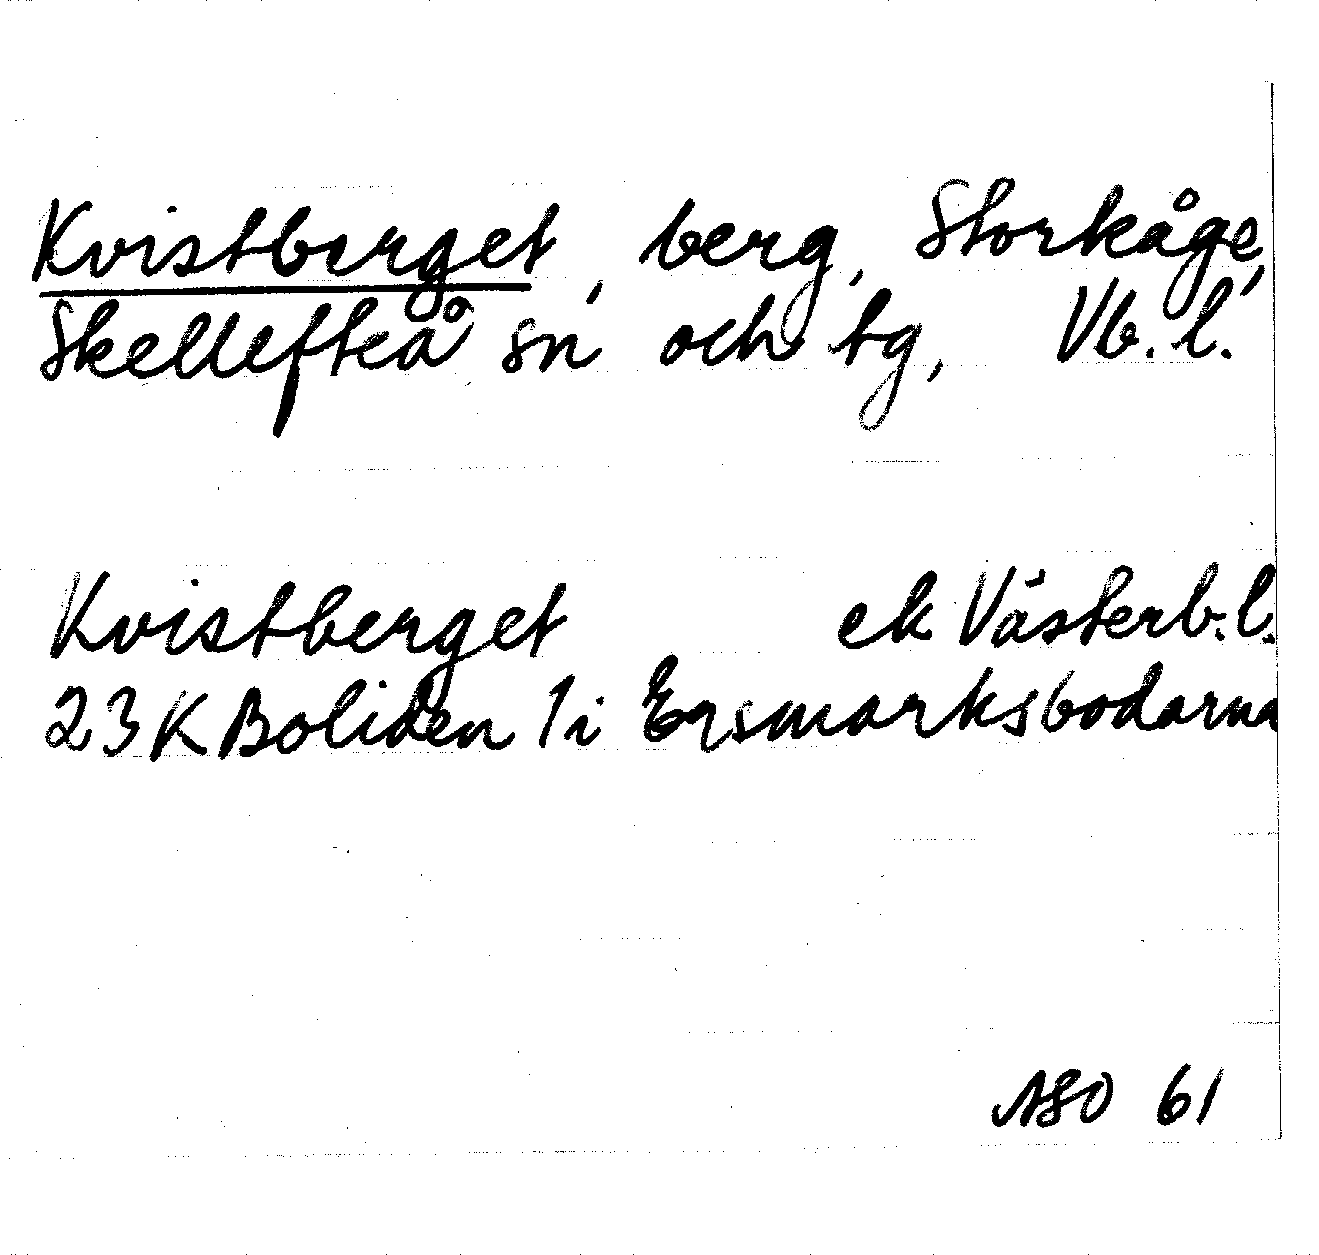 Kvistberget, berg, Storkåge,
Skellefteå sn och tg, Vb. l.
Kvistberget ek Västerb. l.
23K Boliden 1i Ersmarksbodarna
ASO 61